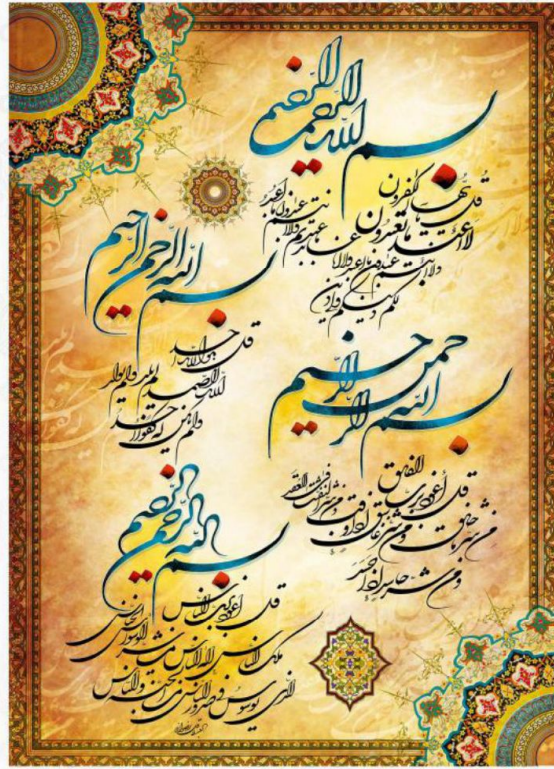 بسم الله الرحمن الرحیم
قل یا ایها الکافرون
لا اعبد ما تعبدون
ولا انتم عابدون ما اعبد ولا انا عابد ما عبدتم ولا انتم عابدون ما اعبد
لکم دینکم ولی دین
بسم الله الرحمن الرحیم
قل هو الله احد
الله الصمد لم یلد ولم یولد
ولم یکن له کفوا احد
بسم الله الرحمن الرحیم
قل أعوذ برب الفلق
من شر ما خلق ومن شر غاسق اذا وقب ومن شر النفاثات فی العقد
ومن شر حاسد اذا حسد
بسم الله الرحمن الرحیم
قل أعوذ برب الناس
ملک الناس اله الناس من شر الوسواس الخناس
الذی یوسوس فی صدور الناس من الجنة والناس